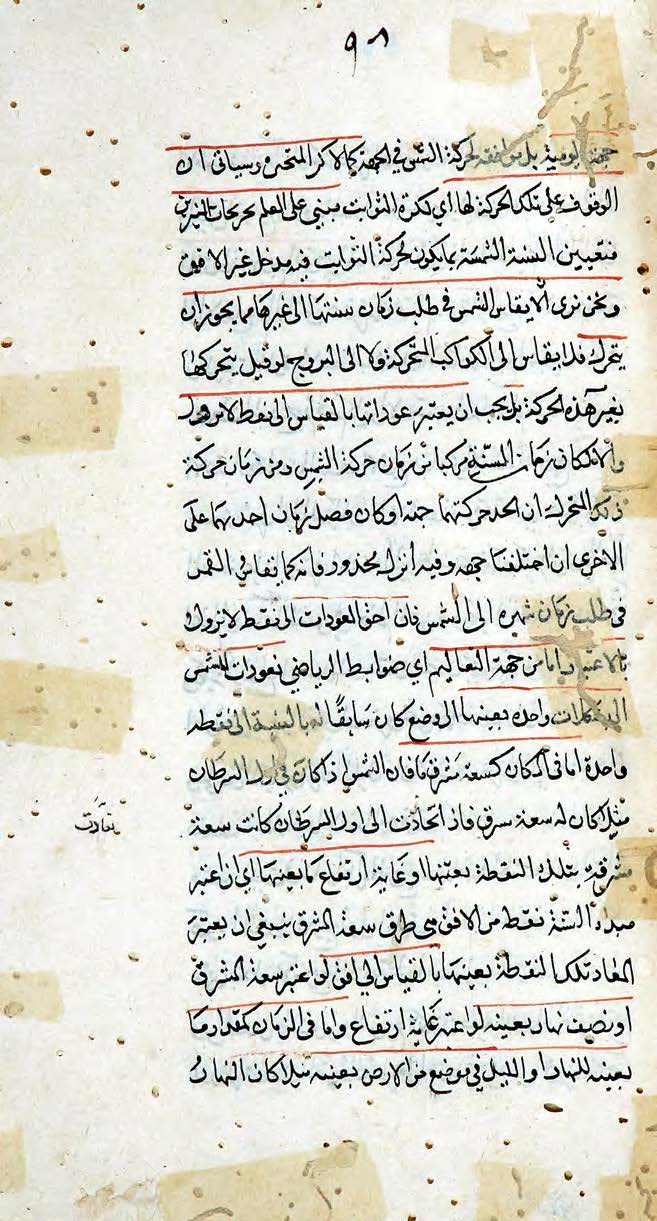 ٩٨
جهة اليومية بل موافقة لحركة الشمس في الجهة كالاكر المتحيرة وسياتى ان
الوقوف على تلك الحركة لها اي لكرة الثوابت مبني على العلم بحركات النيرين
فتعيين السنة الشمسية بما يكون لحركة الثوابت فيه مدخل غير الافق
ونحن نرى ألا يقاس الشمس في طلب زمان سنتها الى غيرها مما يجوز ان
يتحرك فلا يقاس الى الكواكب المتحركة ولا الى البروج لو قيل بتحركها
بغير هذه الحركة بل يجب ان يعتبر عوداتها بالقياس الى نقط لا تزول
والا لكان زمان السنة مركبا من زمان حركة الشمس ومن زمان حركة
ذلك المتحرك ان اتحد حركتهما جهة او كان فضل زمان احدهما على
الاخرى ان اختلفتا جهة وفيه ادنى محذور فانه كما يقاس القمر
في طلب زمان شهره الى الشمس فان احق العودات الى نقط لا تزول
بالاعتبار اما من جهة التعاليم اي ضوابط الرياضي فعودات الشمس
الى واحدة بعينها الى وضع كان سابقا له بالنسبة الى نقطه
واحدة اما في المكان كسعة مشرق ما فان الشمس اذا كان في اول السرطان
مثلا كان له سعة مشرق فاذا عادت الى اول السرطان كانت سعة
مشرقه بتلك النقطة بعينها او غاية ارتفاع ما بعينها اي ان اعتبر
مبداء السنة نقطة من الافق هي طرف سعة المشرق ينبغي ان يعتبر
المعاد تلك النقطة بعينها بالقياس الى افق لو اعتبر سعة المشرق
او نصف نهار بعينه لو اعتبر غاية ارتفاع واما في الزمان كمقدار ما
بعينه للنهار او الليل في موضع من الارض بعينه مثلا كان النهار